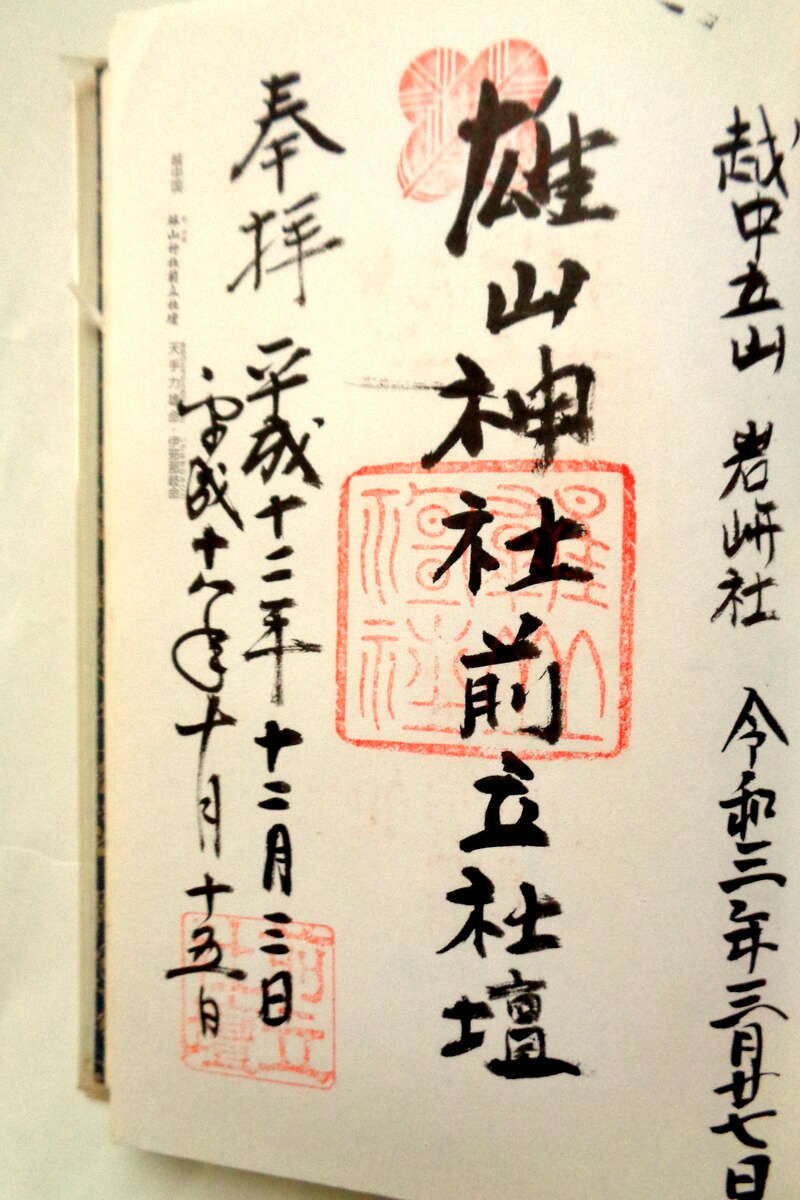 越中立山 岩峅社 令和三年三月廿七日
雄山神社前立社壇
雄山神社
奉拝 平成十二年十二月三日
平成十六年十月十五日
前立社壇
越中国 雄山神社前立社壇 天手力雄命・伊邪那岐命